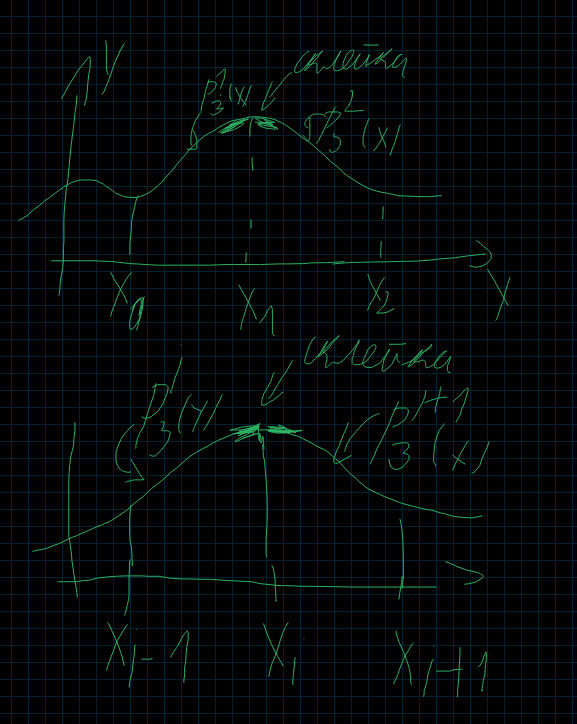 y
склейка
P₃¹(x)
P₃²(x)
x₀ x₁ x₂ x
склейка
P₃ⁱ(x)
P₃ⁱ⁺¹(x)
xᵢ₋₁ xᵢ xᵢ₊₁